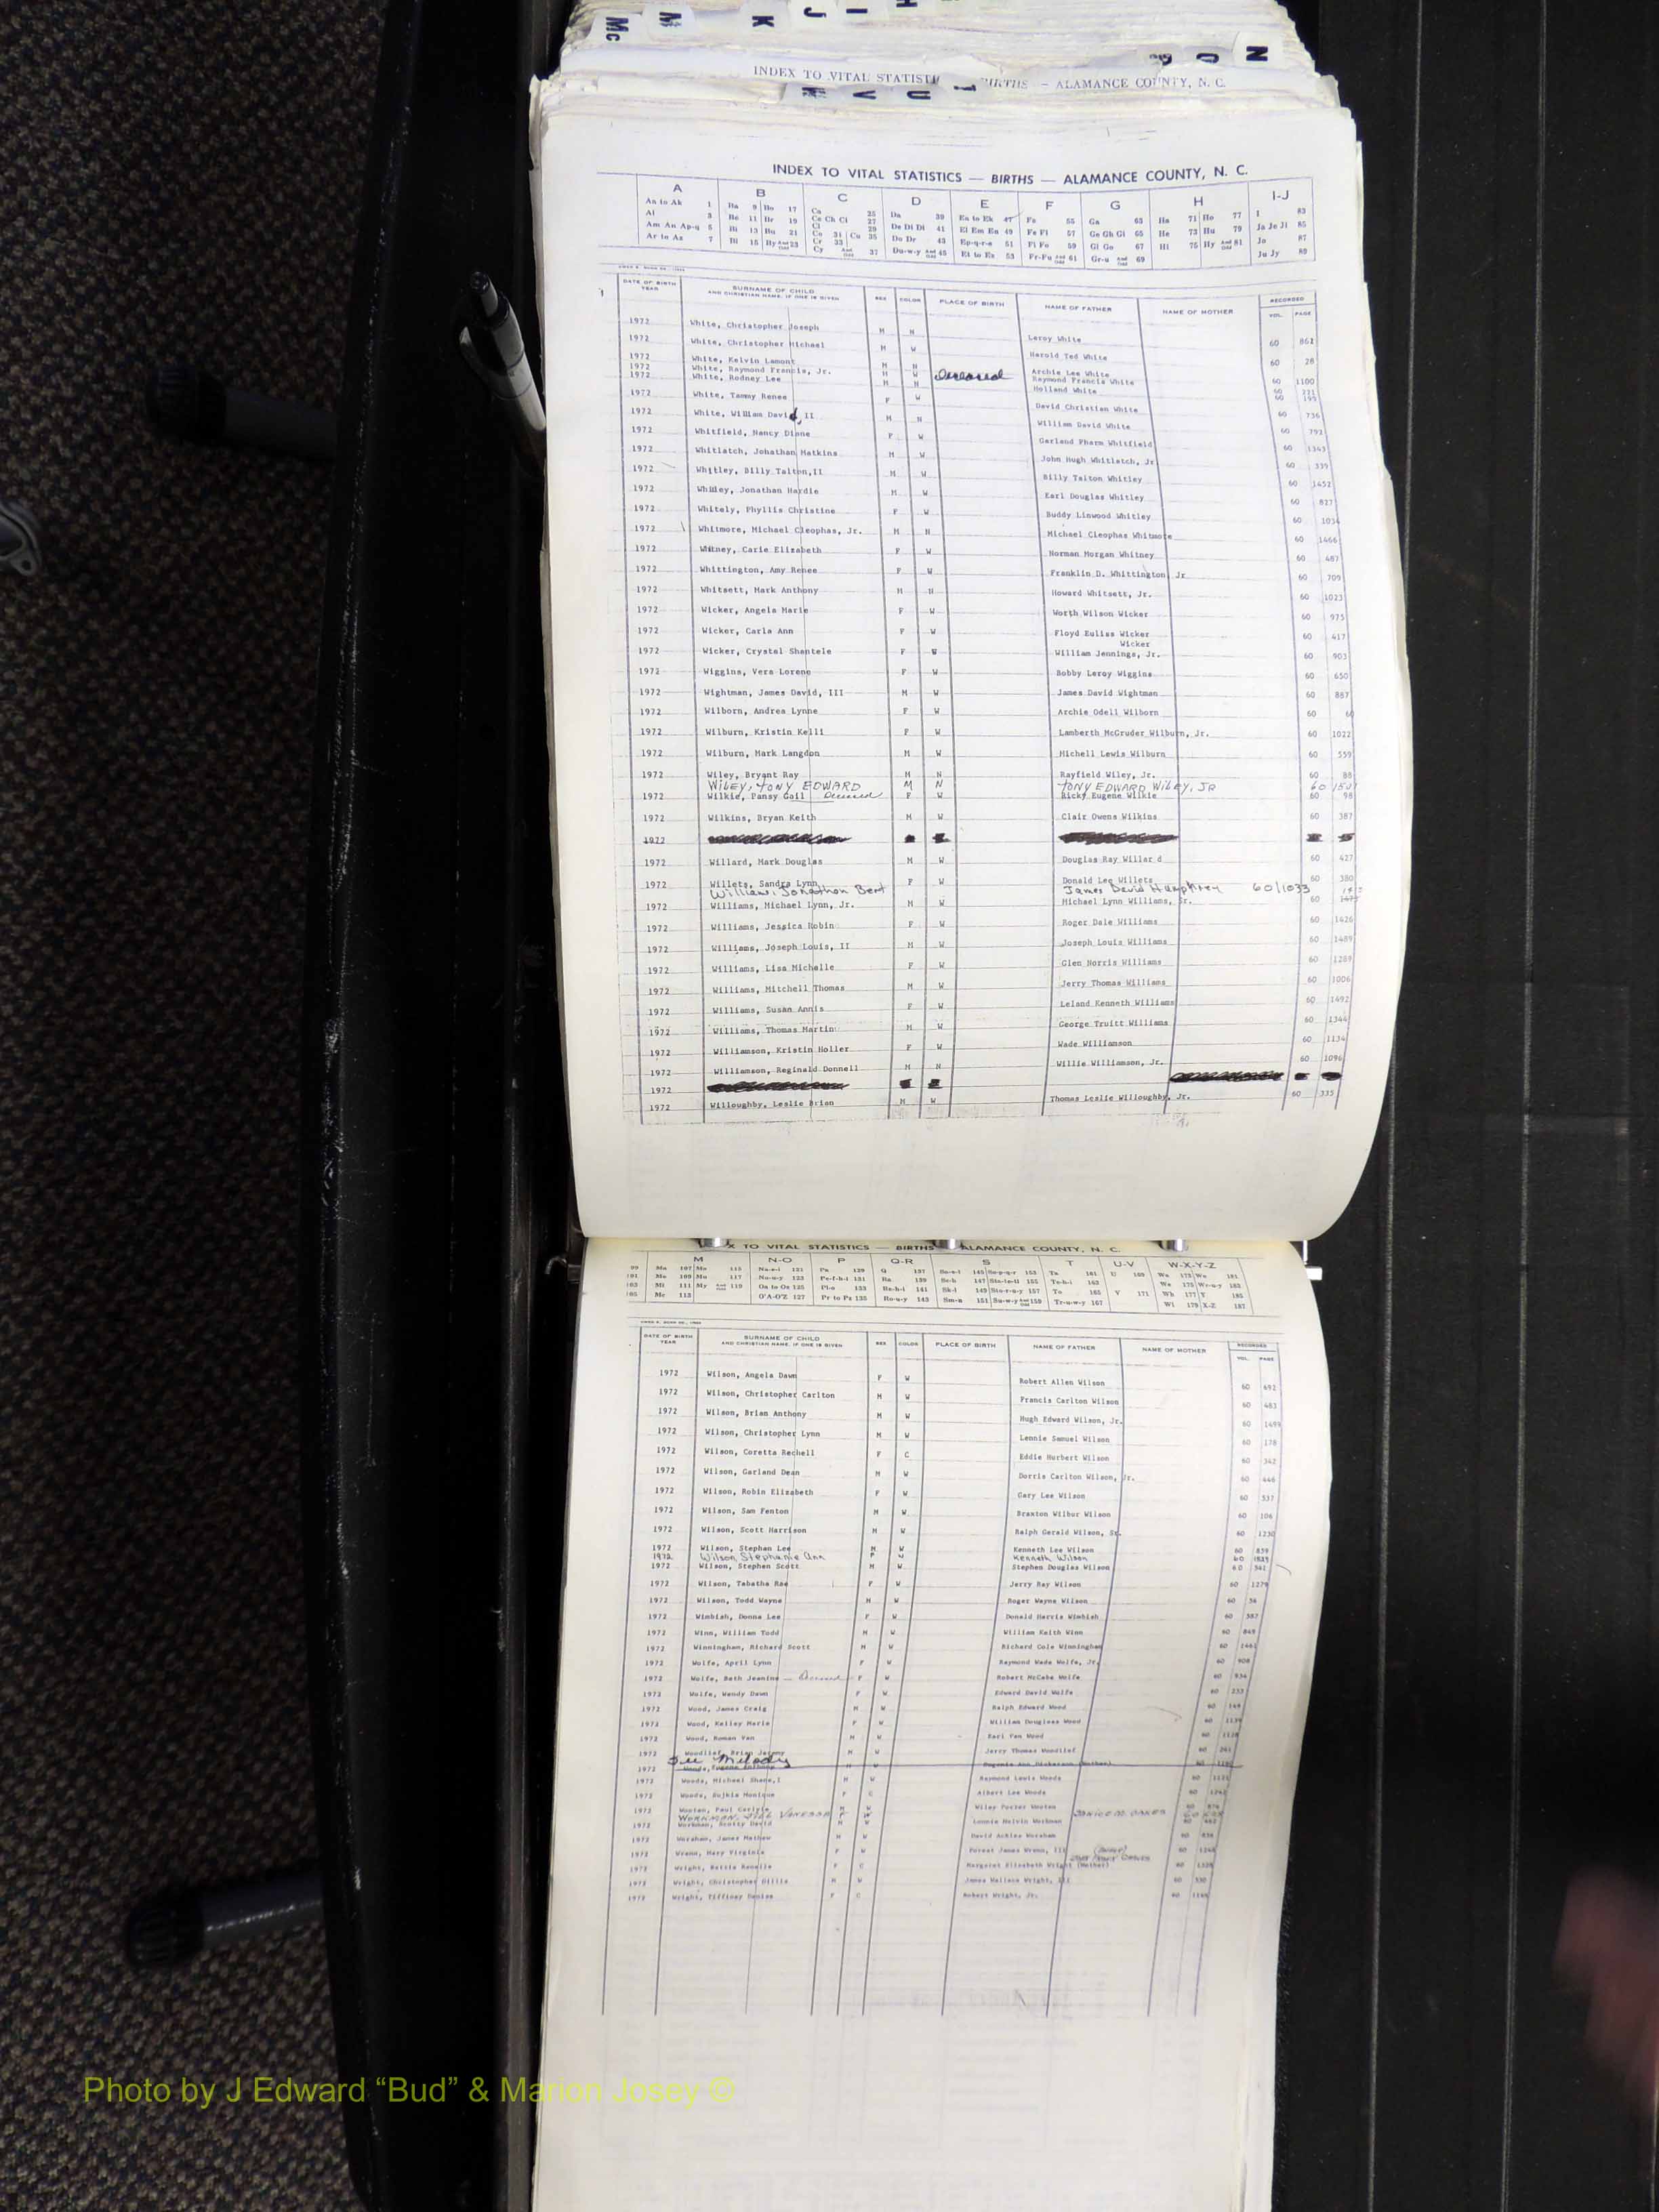 Mc M K J I H
N
INDEX TO VITAL STATISTI BIRTHS — ALAMANCE COUNTY, N. C.
V U
INDEX TO VITAL STATISTICS — BIRTHS — ALAMANCE COUNTY, N. C.
A B C D E F G H I-J
DATE OF BIRTH YEAR SURNAME OF CHILD AND CHRISTIAN NAME, IF ONE IS GIVEN SEX COLOR PLACE OF BIRTH NAME OF FATHER NAME OF MOTHER RECORDED VOL. PAGE
1972 White, Christopher Joseph M N Leroy White 60 861
1972 White, Christopher Michael M W Harold Ted White 60 28
1972 White, Kelvin Lamont M N Archie Lee White 60 1100
1972 White, Raymond Francis, Jr. M W Deceased Raymond Francis White 60
1972 White, Rodney Lee M N Holland White 60 199
1972 White, Tammy Renee F W David Christian White 60 736
1972 White, William David, II M N William David White 60 793
1972 Whitfield, Nancy Diane F W Garland Pharm Whitfield 60 1343
1972 Whitlatch, Jonathan Watkins M W John Hugh Whitlatch, Jr. 60 339
1972 Whitley, Billy Talton, II M W Billy Talton Whitley 60 1452
1972 Whitley, Jonathan Hardie M W Earl Douglas Whitley 60 827
1972 Whitely, Phyllis Christine F W Buddy Linwood Whitley 60 1034
1972 Whitmore, Michael Cleophas, Jr. M N Michael Cleophas Whitmore 60 1466
1972 Whitney, Carie Elizabeth F W Norman Morgan Whitney 60 487
1972 Whittington, Amy Renee F W Franklin D. Whittington, Jr 60 709
1972 Whitsett, Mark Anthony M N Howard Whitsett, Jr. 60 1023
1972 Wicker, Angela Marie F W Worth Wilson Wicker 60 975
1972 Wicker, Carla Ann F W Floyd Euliss Wicker 60 417
Wicker
1972 Wicker, Crystal Shantele F W William Jennings, Jr. 60 903
1972 Wiggins, Vera Lorene F W Bobby Leroy Wiggins 60 650
1972 Wightman, James David, III M W James David Wightman 60 887
1972 Wilborn, Andrea Lynne F W Archie Odell Wilborn 60
1972 Wilburn, Kristin Kelli F W Lamberth McGruder Wilburn, Jr. 60 1022
1972 Wilburn, Mark Langdon M W Michell Lewis Wilburn 60 559
1972 Wiley, Bryant Ray M N Rayfield Wiley, Jr. 60 88
WILEY, TONY EDWARD M N TONY EDWARD WILEY, JR 60
1972 Wilkie, Pansy Gail Deceased F W Ricky Eugene Wilkie 60 98
1972 Wilkins, Bryan Keith M W Clair Owens Wilkins 60 387
1972
1972 Willard, Mark Douglas M W Douglas Ray Willard 60 427
1972 Willets, Sandra Lynn F W Donald Lee Willets 60 380
Williams, Jonathon Bert James David Humphrey 60/1033
1972 Williams, Michael Lynn, Jr. M W Michael Lynn Williams, Sr. 60
1972 Williams, Jessica Robin F W Roger Dale Williams 60 1426
1972 Williams, Joseph Louis, II M W Joseph Louis Williams 60 1489
1972 Williams, Lisa Michelle F W Glen Norris Williams 60 1289
1972 Williams, Mitchell Thomas M W Jerry Thomas Williams 60 1006
1972 Williams, Susan Annis F W Leland Kenneth Williams 60 1492
1972 Williams, Thomas Martin M W George Truitt Williams 60 1344
1972 Williamson, Kristin Holler F W Wade Williamson 60 1134
1972 Williamson, Reginald Donnell M N Willie Williamson, Jr. 60 1096
1972
1972 Willoughby, Leslie Brian M W Thomas Leslie Willoughby, Jr. 60 335
X TO VITAL STATISTICS — BIRTHS ALAMANCE COUNTY, N. C.
M N-O P Q-R S T U-V W-X-Y-Z
DATE OF BIRTH YEAR SURNAME OF CHILD AND CHRISTIAN NAME, IF ONE IS GIVEN SEX COLOR PLACE OF BIRTH NAME OF FATHER NAME OF MOTHER RECORDED VOL. PAGE
1972 Wilson, Angela Dawn F W Robert Allen Wilson 60 692
1972 Wilson, Christopher Carlton M W Francis Carlton Wilson 60 483
1972 Wilson, Brian Anthony M W Hugh Edward Wilson, Jr. 60 1499
1972 Wilson, Christopher Lynn M W Lennie Samuel Wilson 60 178
1972 Wilson, Coretta Rechell F C Eddie Hurbert Wilson 60 342
1972 Wilson, Garland Dean M W Dorris Carlton Wilson, Jr. 60 446
1972 Wilson, Robin Elizabeth F W Gary Lee Wilson 60 537
1972 Wilson, Sam Fenton M W Braxton Wilbur Wilson 60 106
1972 Wilson, Scott Harrison M W Ralph Gerald Wilson, Sr. 60 1230
1972 Wilson, Stephan Lee M W Kenneth Lee Wilson 60 859
1972 Wilson, Stephanie Ann F W Kenneth Wilson 60
1972 Wilson, Stephen Scott M W Stephen Douglas Wilson 60 541
1972 Wilson, Tabatha Rae F W Jerry Ray Wilson 60 1279
1972 Wilson, Todd Wayne M W Roger Wayne Wilson 60 36
1972 Wimbish, Donna Lee F W Donald Harris Wimbish 60 387
1972 Winn, William Todd M W William Keith Winn 60 849
1972 Winningham, Richard Scott M W Richard Cole Winningham 60 1461
1972 Wolfe, April Lynn F W Raymond Wade Wolfe, Jr. 60 908
1972 Wolfe, Beth Jeanine — Deceased F W Robert McCabe Wolfe 60 934
1972 Wolfe, Wendy Dawn F W Edward David Wolfe 60 233
1972 Wood, James Craig M W Ralph Edward Wood 60 149
1972 Wood, Kelley Marie F W William Douglass Wood 60 1139
1972 Wood, Roman Van M W Earl Van Wood 60 1128
1972 Woodlief, Brian Jeremy M W Jerry Thomas Woodlief 60 261
See Melody
1972 Woods, Eugene Anthony M W Eugenia Ann Dickerson (Mother) 60
1972 Woods, Michael Shane, I M W Raymond Lewis Woods 60 1121
1972 Woods, Sujkia Monique F C Albert Lee Woods 60 1242
1972 Wooten, Paul Carlyle M W Wiley Porter Wooten 60 874
WORKMAN, JILL VANESSA F W JANICE M. OAKES
1972 Workman, Scotty David M W Lonnie Melvin Workman 60 462
1972 Worsham, James Mathew M W David Ashles Worsham 60 836
1972 Wrenn, Mary Virginia F W Forest James Wrenn, III 60 1248
1972 Wright, Bettie Renelle F C Margaret Elizabeth Wright (Mother) 60 1329
1972 Wright, Christopher Gillis M W James Wallace Wright, III 60 330
1972 Wright, Tiffiney Denise F C Robert Wright, Jr. 60 1146
Photo by J Edward “Bud” & Marion Josey ©